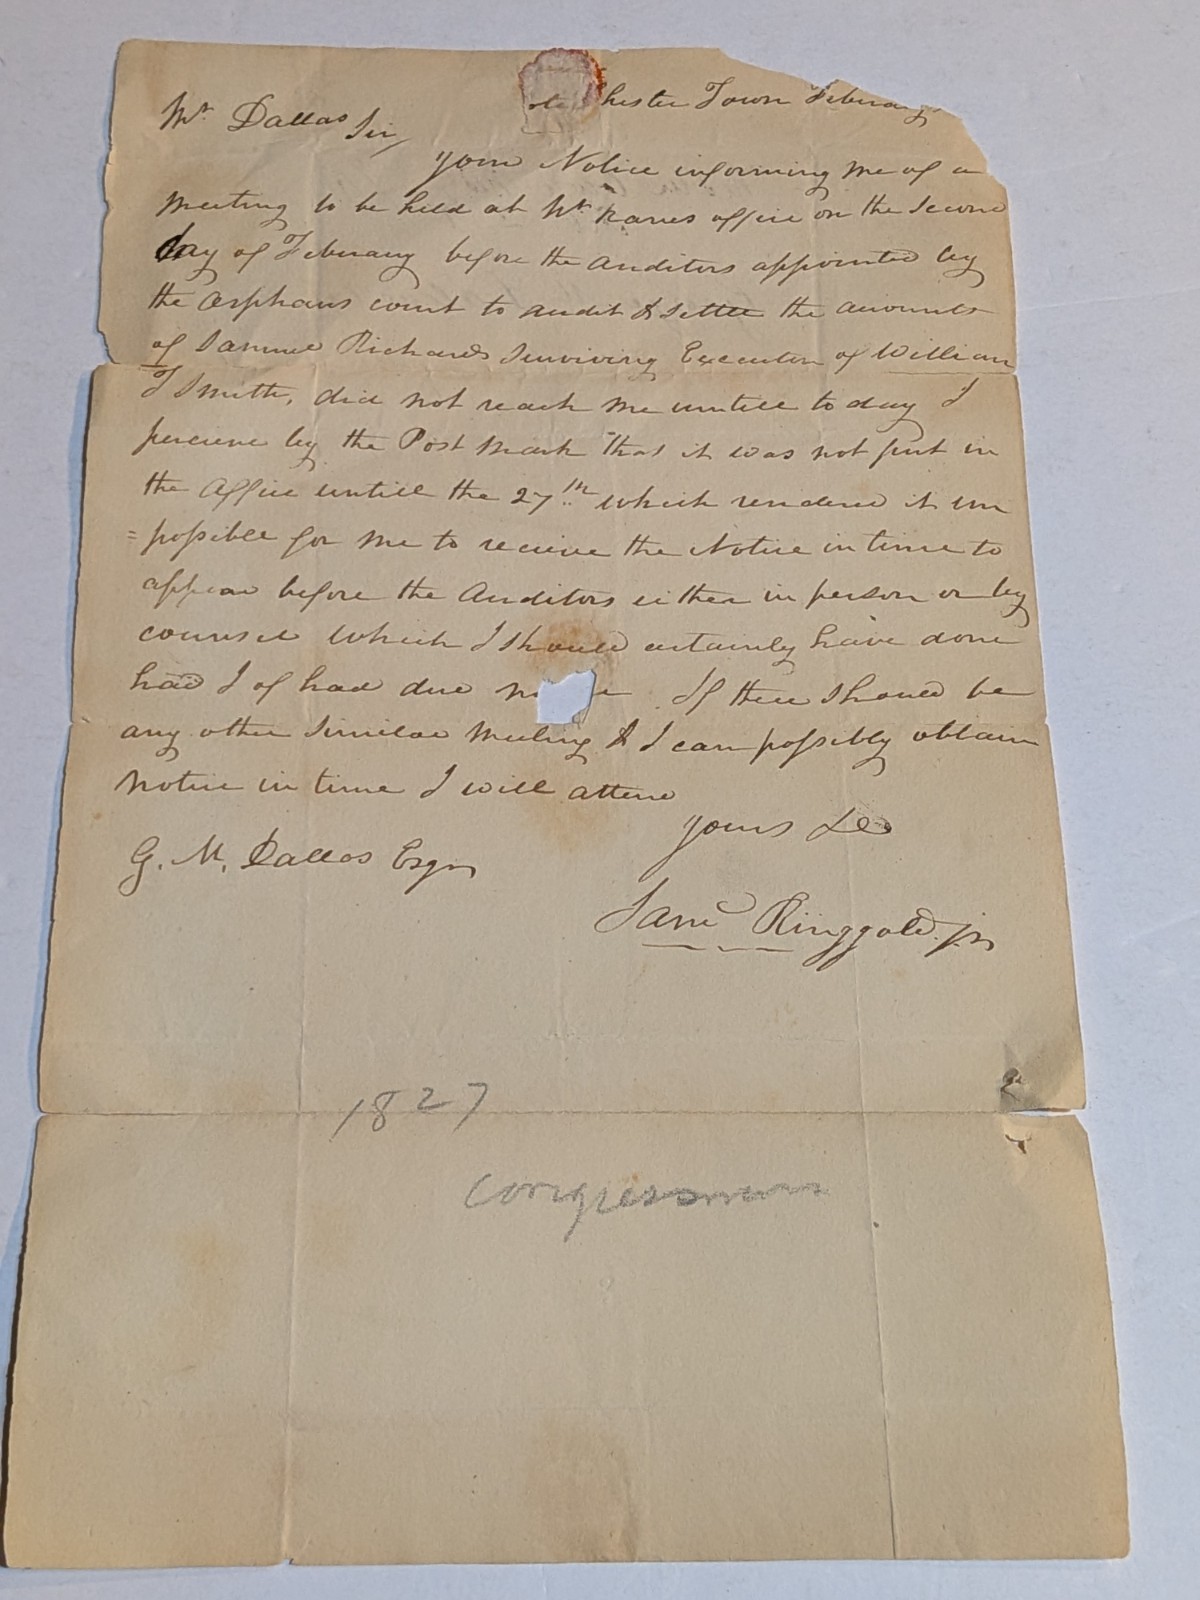 Chester Town February
Mr. Dallas Sir,
your Notice informing me of a
meeting to be held at Mr office on the second
day of February before the auditors appointed by
the orphans court to audit & settle the accounts
of Samuel Richards surviving Executor of William
T Smith, did not reach me untill to day I
percieve by the Post mark that it was not put in
the office untill the 27th which rendered it im
=possible for me to recieve the Notice in time to
appear before the Auditors either in person or by
counsel which I should certainly have done
had I of had due If there should be
any other similar meeting & I can possibly obtain
notice in time I will attend
yours &c
G. M. Dallas Esqr
Saml Ringgold. jr
1827
congressman